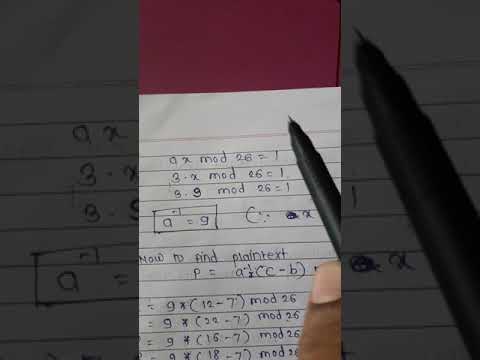 ax mod 26 = 1
3·x mod 26 = 1
3·9 mod 26 = 1
a⁻¹ = 9 C:- x
Now to find plaintext
P = a⁻¹ (C-b)
= 9 * (12-7) mod 26
= 9 * (22-7) mod 26
= 9 * (15-7) mod 26
= 9 * (18-7) mod 26